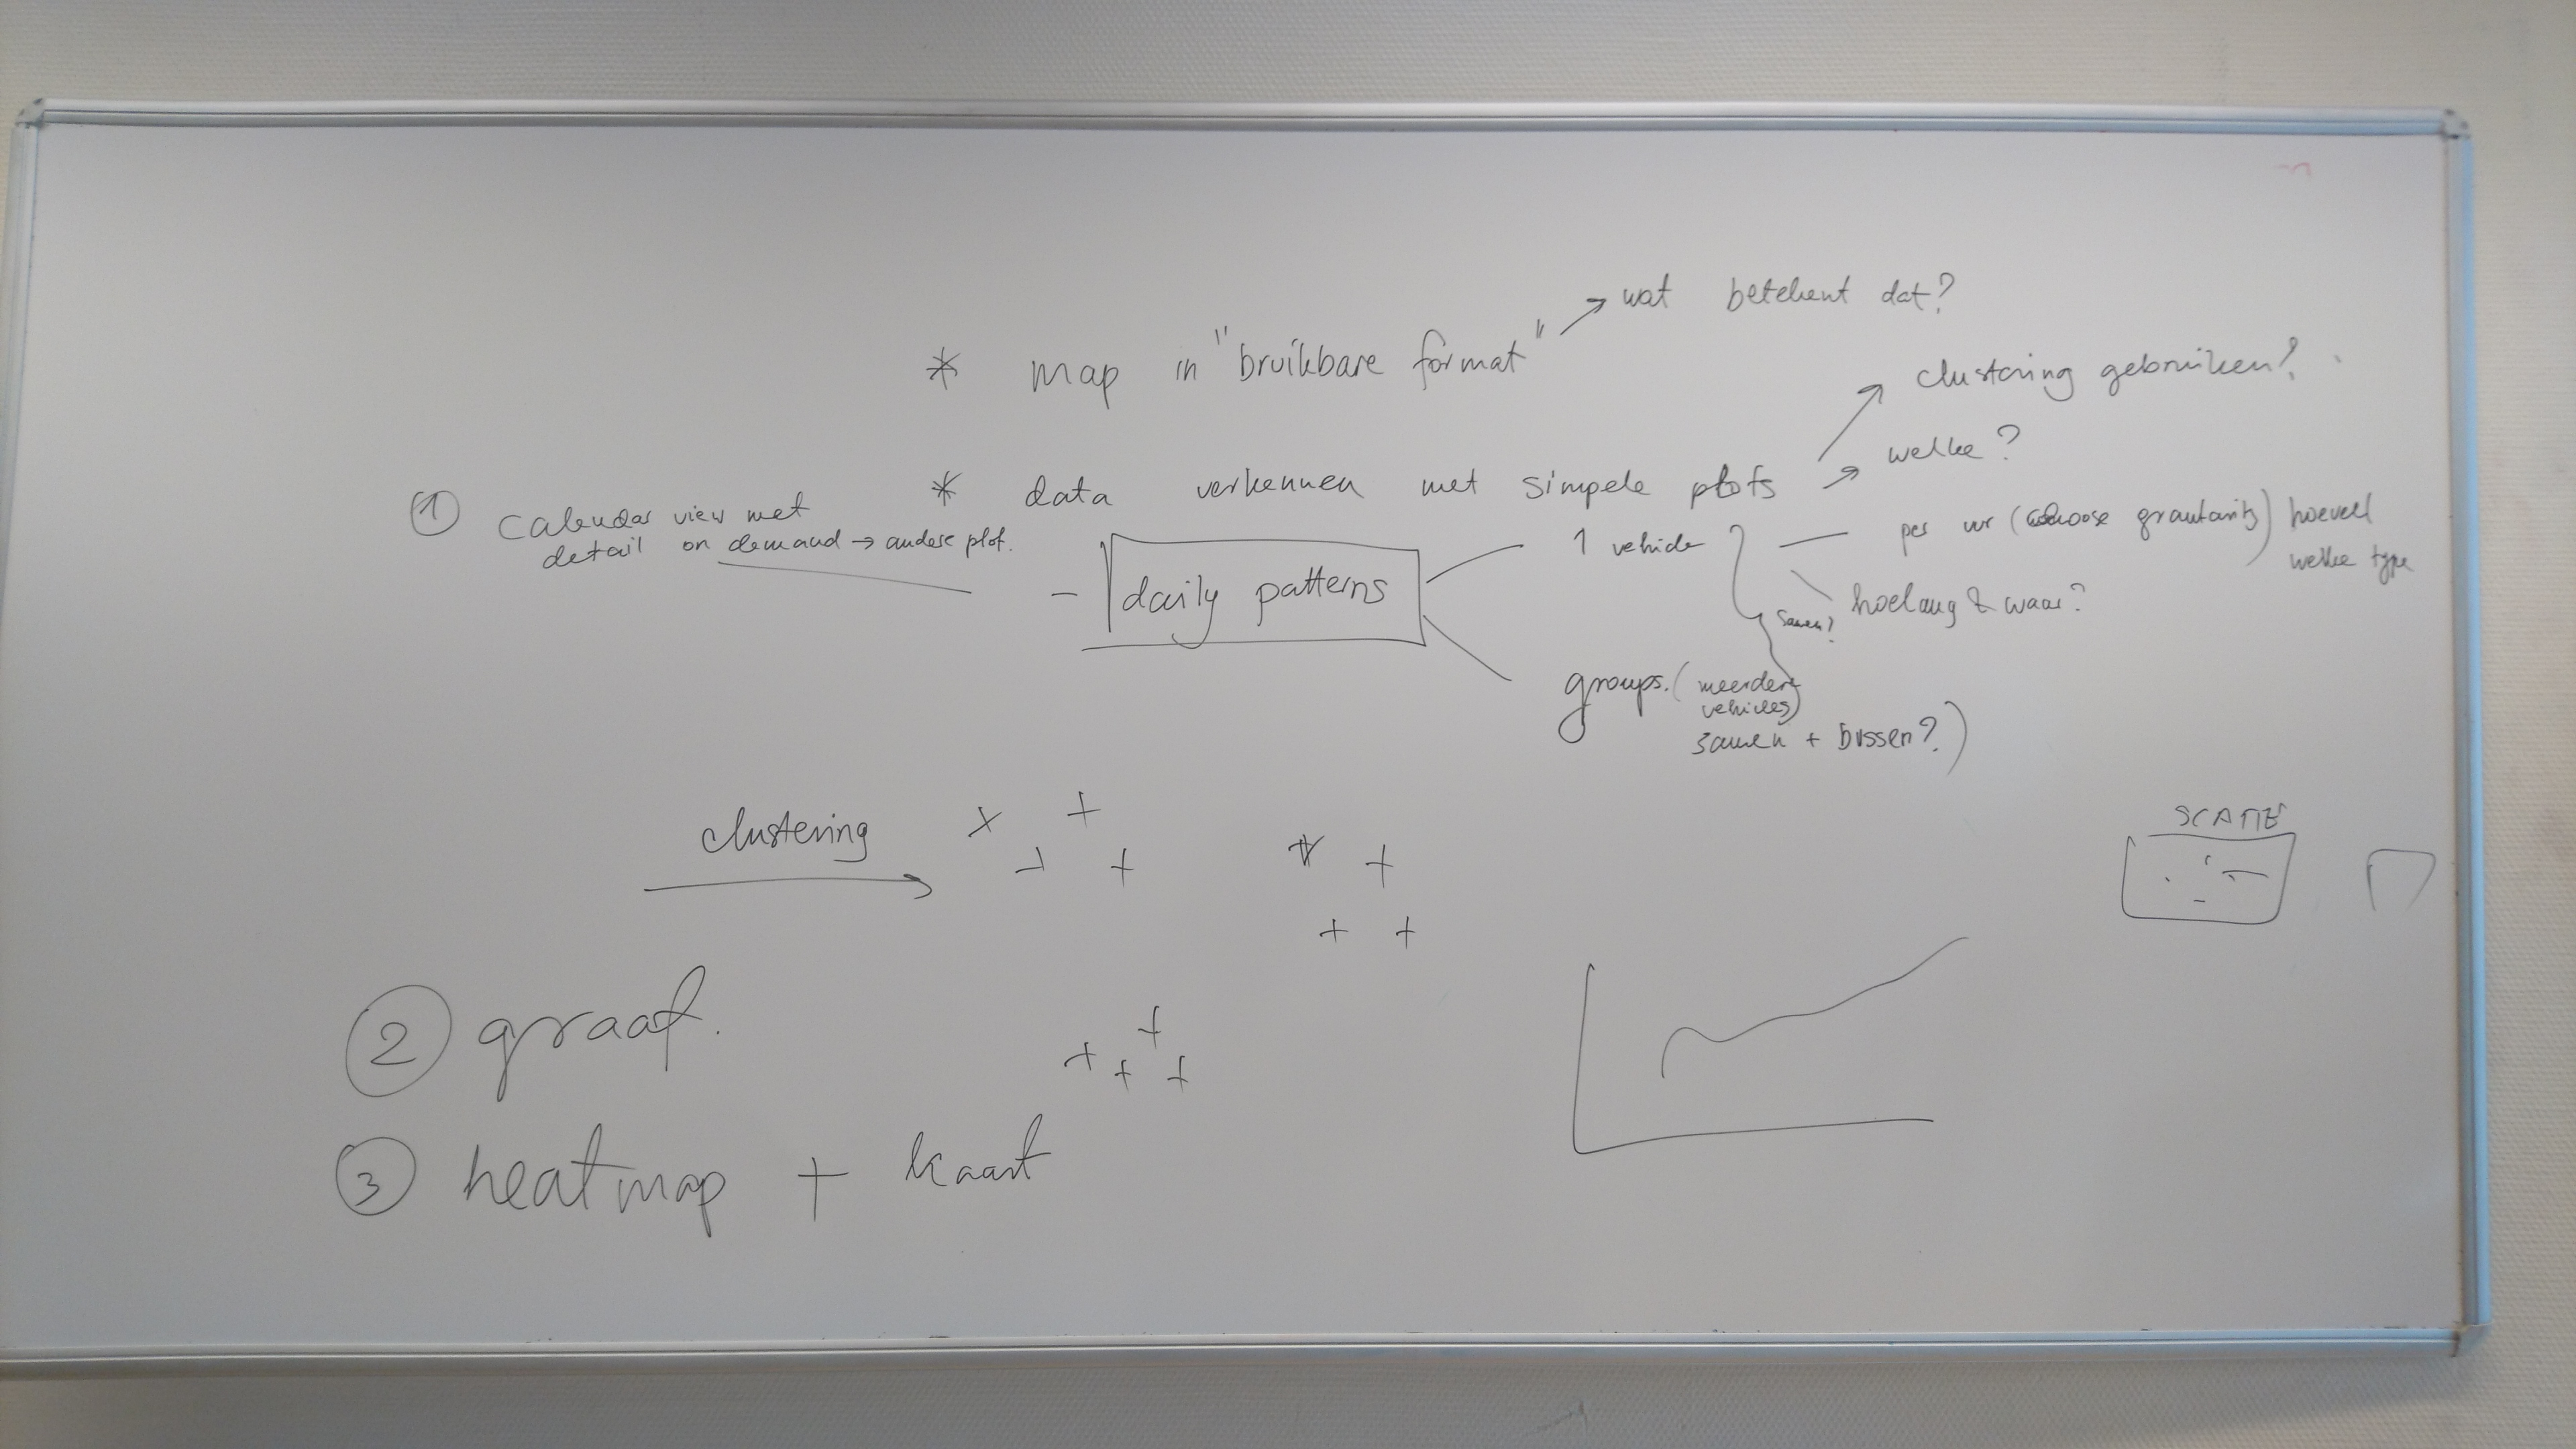 * map in "bruikbare format" → wat betekent dat?
* data verkennen met simpele plots
→ clustering gebruiken?
→ welke?
① Calendar view met
detail on demand → andere plot.
- daily patterns
1 vehicle
per uur (choose granularity) hoeveel
welke type
hoelang & waar?
samen?
groups. (meerdere
vehicles)
samen + bussen?)
clustering
SCATTE
② graaf.
③ heatmap + kaart